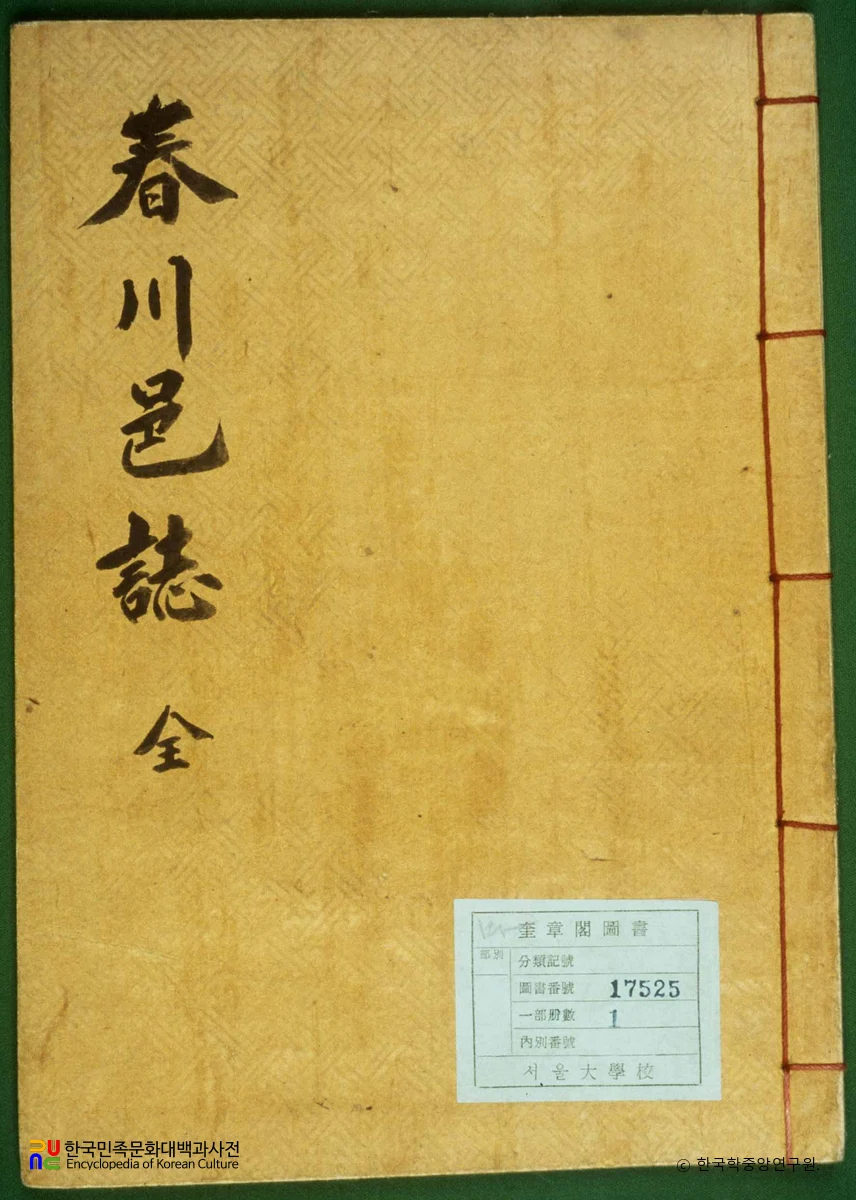 春川邑誌 全
奎章閣圖書
部別
分類記號
圖書番號 17525
一部册數 1
內別番號
서울大學校
한국민족문화대백과사전
Encyclopedia of Korean Culture
© 한국학중앙연구원.